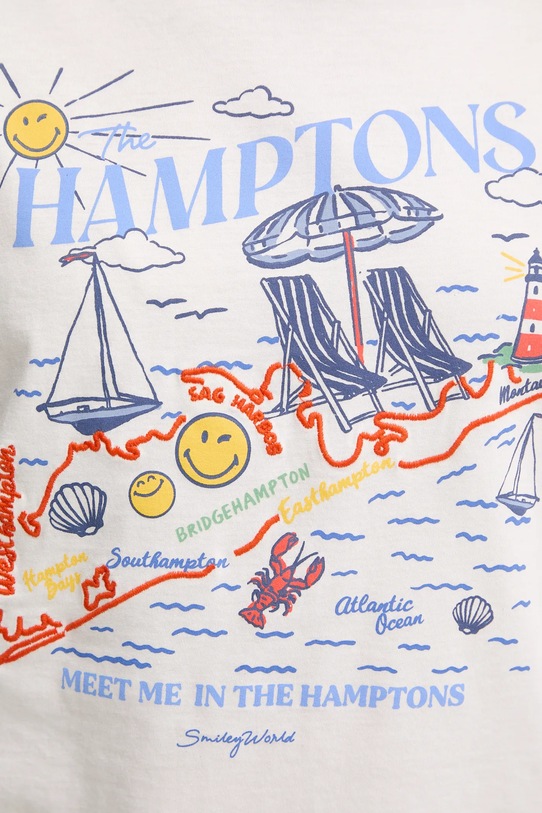 The
HAMPTONS
SAG HARBOR
Westhampton
BRIDGEHAMPTON
Easthampton
Hampton
Bays
Southampton
Atlantic
Ocean
MEET ME IN THE HAMPTONS
SmileyWorld